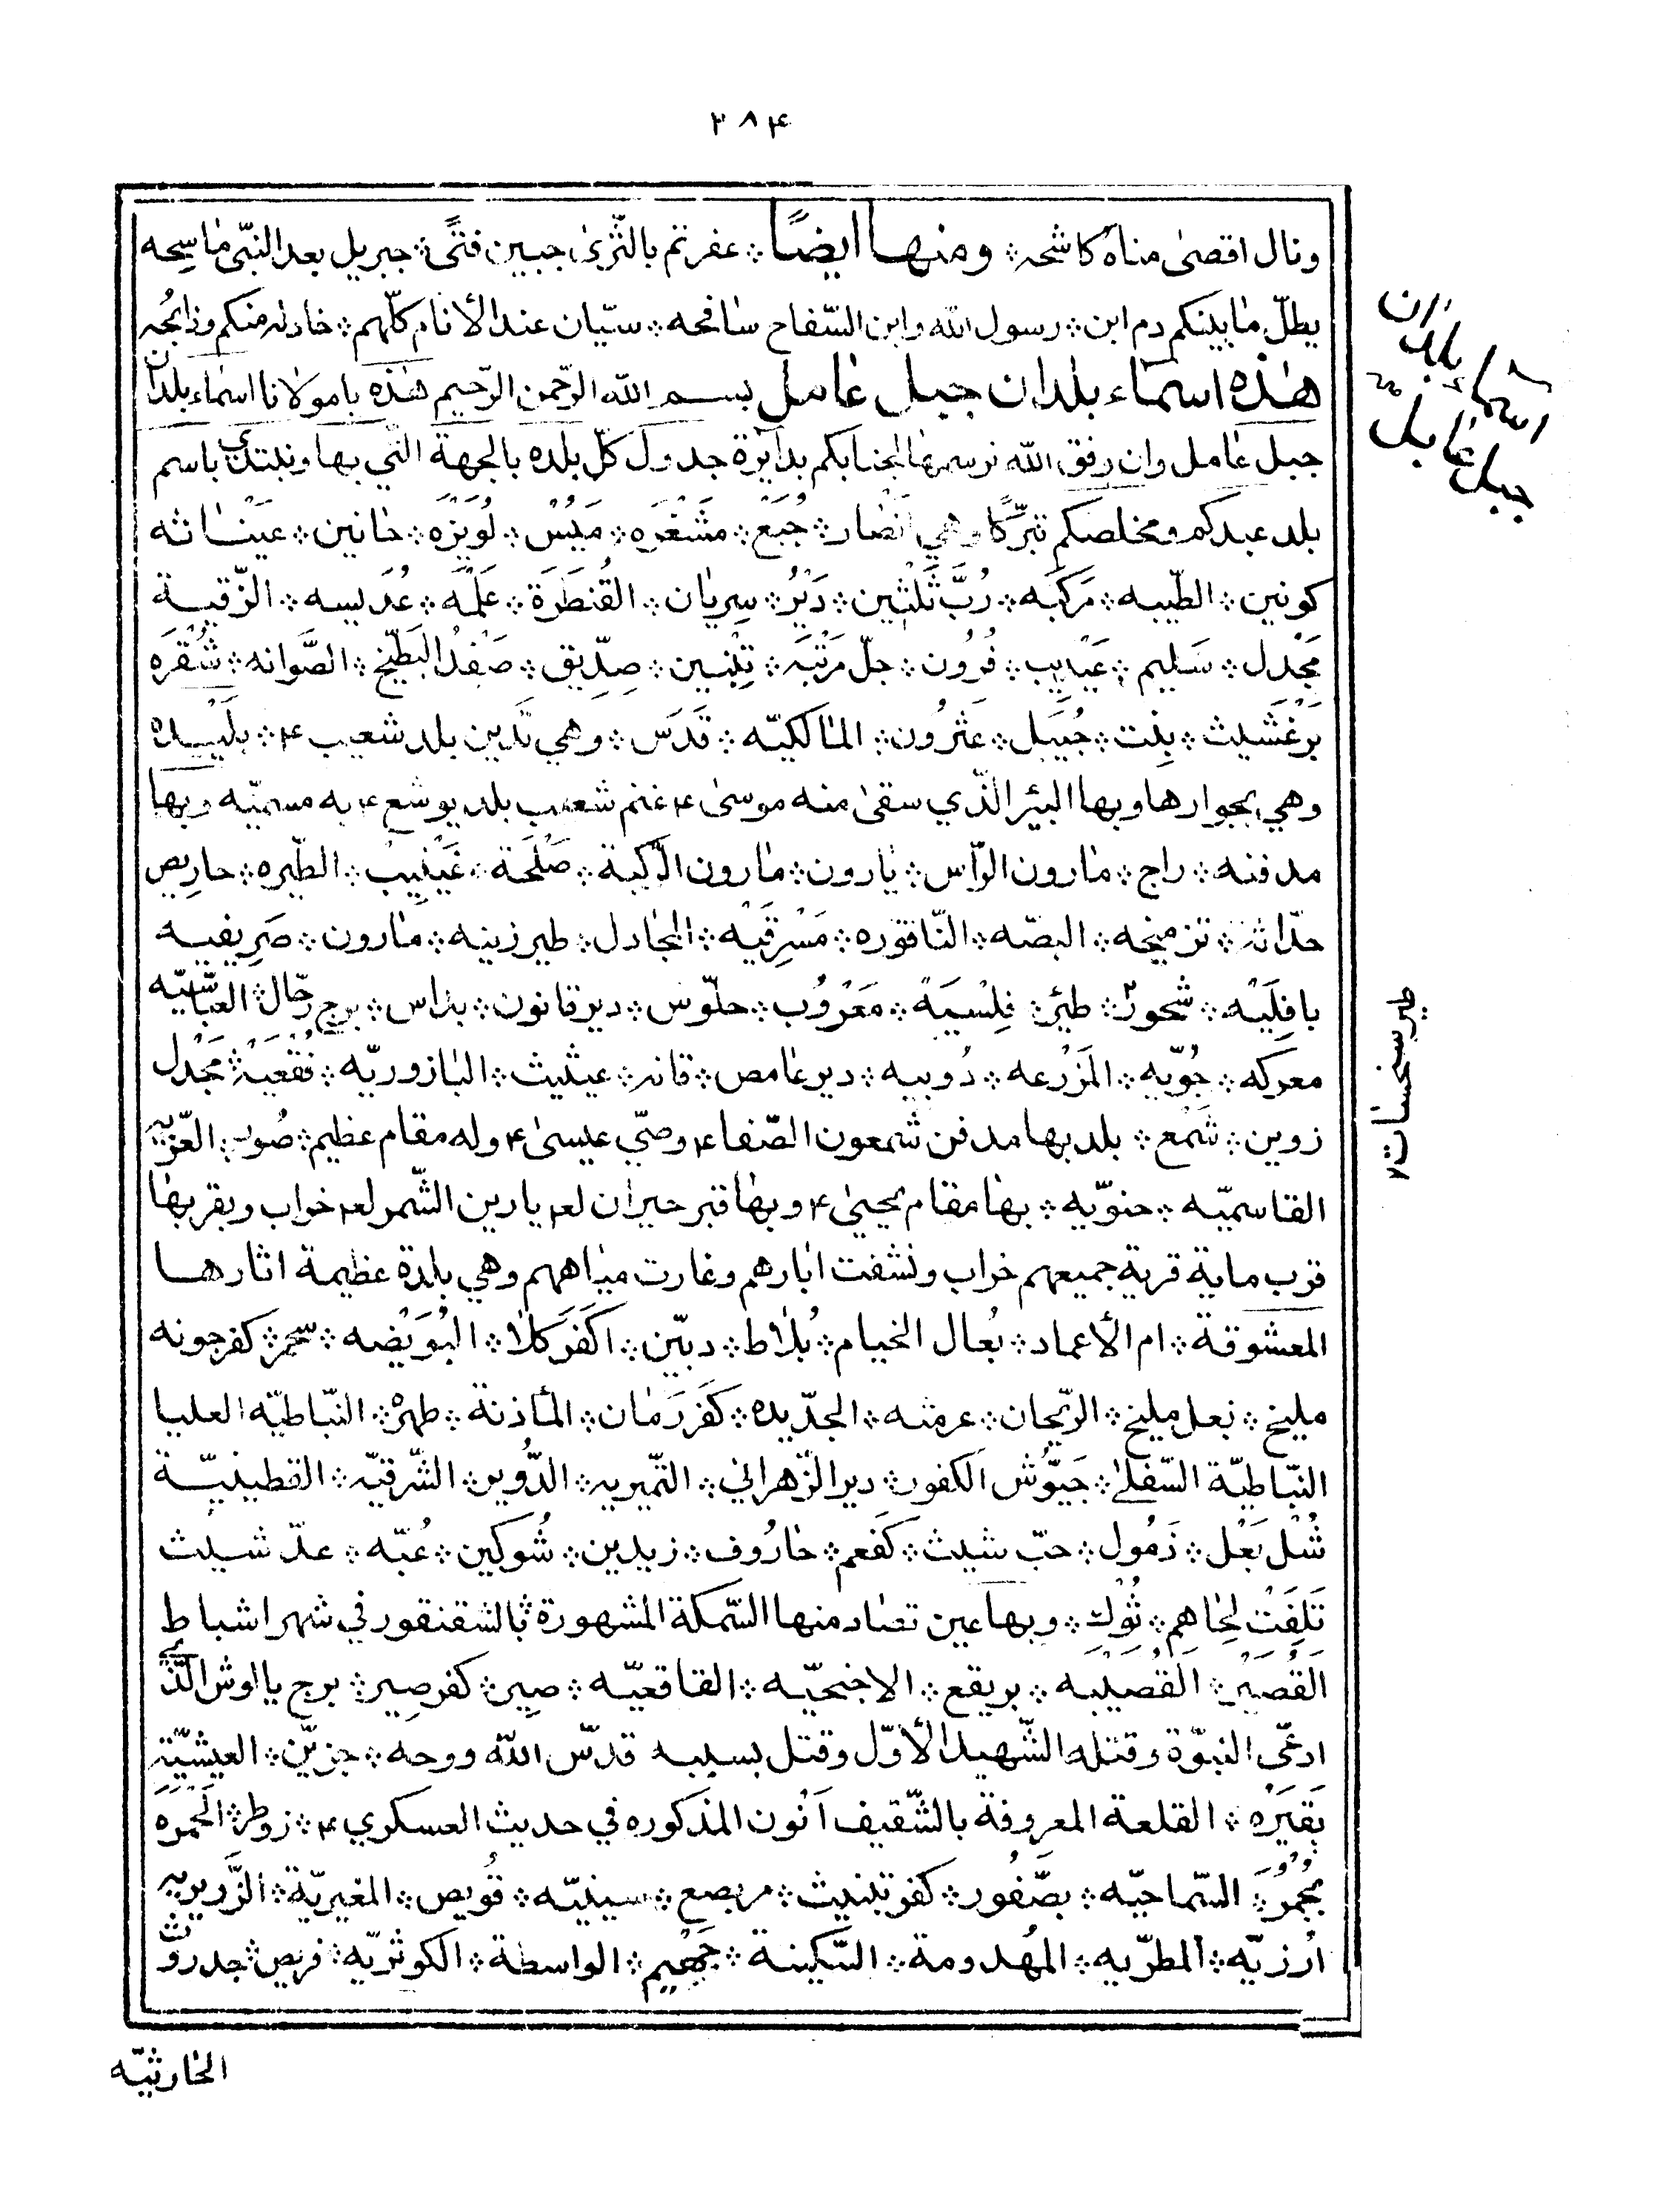 ۲۸۴
ونال اقصىٰ مناه كاشحه ❊ ومنها ايضًا ❊ عفرتم بالثّرىٰ جبين فتًى ❊ جبريل بعد النبّى ماسحه
يطلّ مابينكم دم ابن ❊ رسول الله وابن السّفاح سافحه ❊ سيّان عند الأنام كلّهم ❊ خاذله منكم وذابحه
هٰذه اسماء بلدان جبل عامل بسم الله الرّحمن الرّحيم هٰذه يا مولانا اسماء بلدان
جبل عامل وان وفق الله نرسمها لجنابكم بدايرة جدول كلّ بلده بالجهة الّتي بها ونبتدي باسم
بلد عبدكم ومخلصكم تبرّكًا وهي انصار ❊ جُبَع ❊ مَشْغَره ❊ مَيْسْ ❊ لُوَيْزه ❊ حانين ❊ عَيْناثه
كونين ❊ الطّيبه ❊ مَركبَه ❊ رُبَّ ثَلٰثين ❊ دَيْرُ ❊ سِريان ❊ القُنطَرَة ❊ عَلْمَه ❊ عُدَيسه ❊ الزّقيـة
مَجْدل ❊ سَليم ❊ ❊ فُرُون ❊ جلّ مَرْتبَه ❊ تِبْنين ❊ صِدّيق ❊ صَفْدُ البَطّيخ ❊ الصَّوانه ❊ شُقْرَه
بَرْعَشيث ❊ بِنْت ❊ جُبَيل ❊ عَثرُون ❊ المٰالكيّه ❊ قَدَس ❊ وهي مَدين بلد شعيب ۴ ❊ بلَيْده
وهي بجوارها وبها البئر الّذي سقىٰ منه موسىٰ ۴ غنم شعيب بلد يوشع ۴ به مسميّه وبها
مدفنه ❊ راج ❊ مٰارون الرّاس ❊ يٰارون ❊ مٰارون الرّكبة ❊ صَلْحَة ❊ ❊ الطّيره ❊ حاريص
حدّاثه ❊ تزميخه ❊ البصّه ❊ النّاقوره ❊ مَسْرِقيْه ❊ المجادل ❊ طيرزينه ❊ مٰارون ❊ صَريفيه
بافِلَيْه ❊ شحور ❊ طير ❊ فِلْسَيَة ❊ مَعْرُوب ❊ حلّوس ❊ ديرقانون ❊ بدٰاس ❊ برج رحّال ❊ العبّاسيّه
معركه ❊ جُوّيه ❊ المَزْرعه ❊ دُوبيه ❊ دير عامص ❊ قانه ❊ عيثيث ❊ البٰازوريّه ❊ ❊ مَجْدل
زوين ❊ شَمْع ❊ بلد بها مدفن شمعون الصّفا ۴ وصّي عيسىٰ ۴ وله مقام عظيم ❊ صُور ❊ العزّيه
القاسميّه ❊ حنوّيه ❊ بها مقام يحيىٰ ۴ وبها قبر حيران لعه يارين الشّمر لعه خراب وبقربها
قرب ماية قرية جميعهم خراب ونشفت ابارهم وغارت ميٰاههم وهي بلدة عظيمة اثارها
المعشوقة ❊ ام الأعماد ❊ نُعال الخيام ❊ بُلاط ❊ دبّين ❊ اكَفَركلا ❊ البُوَيْضه ❊ سحمر ❊ كفرجونه
مليخ ❊ نعل مليخ ❊ الرّيحان ❊ عرمته ❊ الجدّيده ❊ كَفَررَمٰان ❊ المأذنة ❊ طهره ❊ النّباطيّه العليا
النّباطيّة السّفلىٰ ❊ جَيُّوش ❊ الكفور ❊ دير الزّهراني ❊ النّميريه ❊ الدُّوير ❊ الشّرقيّه ❊ القطينيّـة
شُلْ بَعْل ❊ زَمُول ❊ حبّ شيث ❊ كَفَعم ❊ خارُوف ❊ زبدين ❊ شُوكين ❊ عُبّه ❊ علّ شيث
تَلِفَتْ لِحٰاهِم ❊ ثُوْل ❊ وبها عين تصاد منها السّمكة المشهورة بالشقنقور في شهر اشباط
القُصَيْر ❊ القُصَيْبه ❊ بريقع ❊ الاجنحيّه ❊ القاقعيّه ❊ صير ❊ كفرصير ❊ برج يالوش الّذي
ادعّى النبوّة وقتله الشّهيد الأوّل وقتل بسببه قدّس الله روحه ❊ جزيّن ❊ العيشيّة
بَقيرَه ❊ القلعة المعروفة بالشّقيف اَنون المذكوره في حديث العسكري ۴ ❊ زوطر ❊ الحَمْره
يُحْمُر ❊ السّماحيّه ❊ بصّفُور ❊ كفرتبنيث ❊ مربصع ❊ سينيّه ❊ قُويص ❊ المغيريّة ❊ الزَّريريه
اُرزيّه ❊ المطرّيه ❊ المهُدومة ❊ السّكينة ❊ جَهيم ❊ الواسطة ❊ الكوثريّه ❊ فريص ❊ جدروْث
الحٰارثيّه
اسمٰاء بلدٰان
جبل عٰامل
طير سنحسات